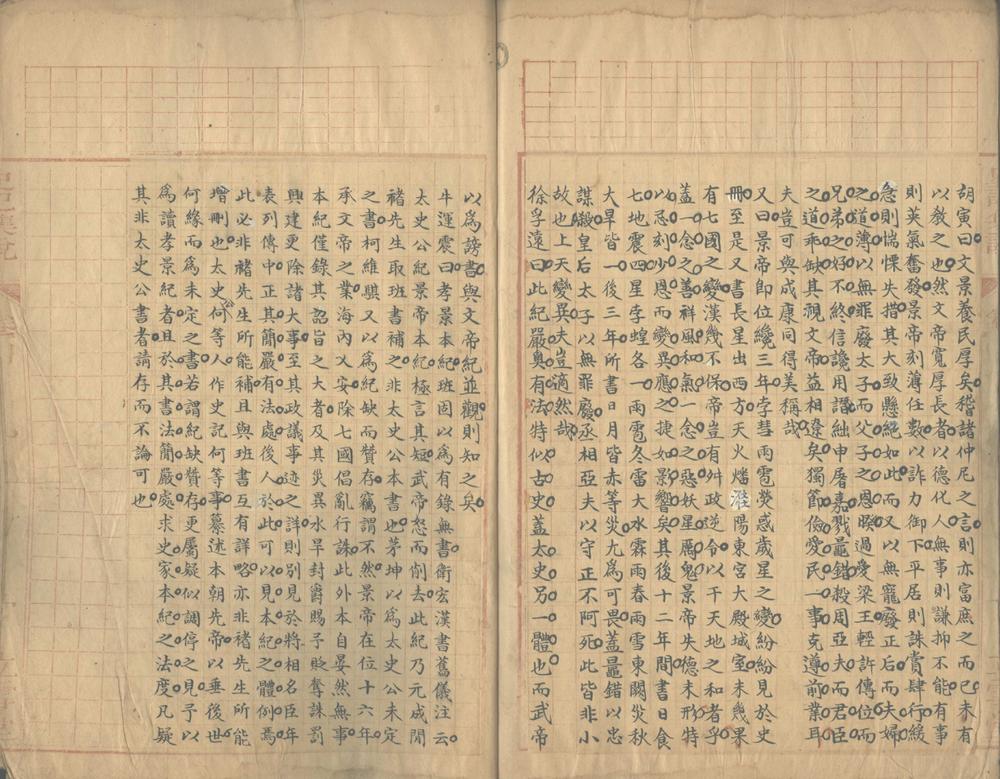 胡寅曰文景養民厚矣稽諸仲尼之言則亦富庶之而已未有
以教之也然文帝寬厚長者以德化人無事則謙抑不能有事
則英氣奮發景帝刻薄任數以詐力御下平居則誅賞肆行緩
急則惴慄失措其大致懸絕如此而又以無寵廢正后而夫婦
之道薄以無罪廢太子而父子之恩睽過愛梁王輕許傳位而
兄弟之好不終信讒用譖絀申屠嘉戮鼂錯殺周亞夫而君臣
之道乖缺其視文帝益相遼矣獨節儉愛民一事克遵前業耳
夫豈可與成康同得美稱哉
又曰景帝即位纔三年孛彗雨雹熒惑歲星之變紛紛見於史
冊至是又書長星出西方天火燔雒陽東宮大殿城室未幾果
有七國之變漢幾不保帝豈有舛政逆令以干天地之和者乎
蓋一念之善祥風和氣一念之惡妖星厲鬼景帝失德未形特
以忌刻少恩而變異應之捷如影響矣其後十二年間書日食
七地震四星孛蝗各一雨雹冬雷大水霖雨春雨雪東闕災秋
大旱皆一後三年所書日月皆赤等災尤為可畏蓋鼂錯以忠
謀繳皇后太子以無罪廢丞相亞夫以守正不阿死此皆非小
故也上天變異夫豈適然哉
徐孚遠曰此紀嚴奧有法特似古史蓋太史另一體也而武帝
以為謗書與文帝紀並觀則知之矣
牛運震曰孝景本紀班固以為有錄無書衛宏漢書舊儀注云
太史公紀景帝本紀極言其短武帝怒而削去此紀乃元成間
褚先生取班書補之非太史公本書也茅坤以為太史公未定
之書柯維騏又以為紀缺而贊存竊謂不然景帝在位十六年
承文帝之業海內乂安除七國倡亂行誅此外本自晏然無事
本紀僅錄其詔旨之大者及其災異水旱封爵賜予貶奪誅罰
興建更除諸大事至其政議事迹之詳則別見於將相名臣年
表列傳中正其簡嚴有法處後人於此可以見本紀之體例焉
此必非褚先生所能補且與班書互有詳略亦非褚先生所能
增刪也太史公何等人作史記何等事纂述本朝先帝以垂後世
何緣而為未定之書若謂紀缺贊存更屬疑似調停之見予以
為讀孝景紀者且於其書法簡嚴處求史家本紀之法度凡疑
其非太史公書者請存而不論可也